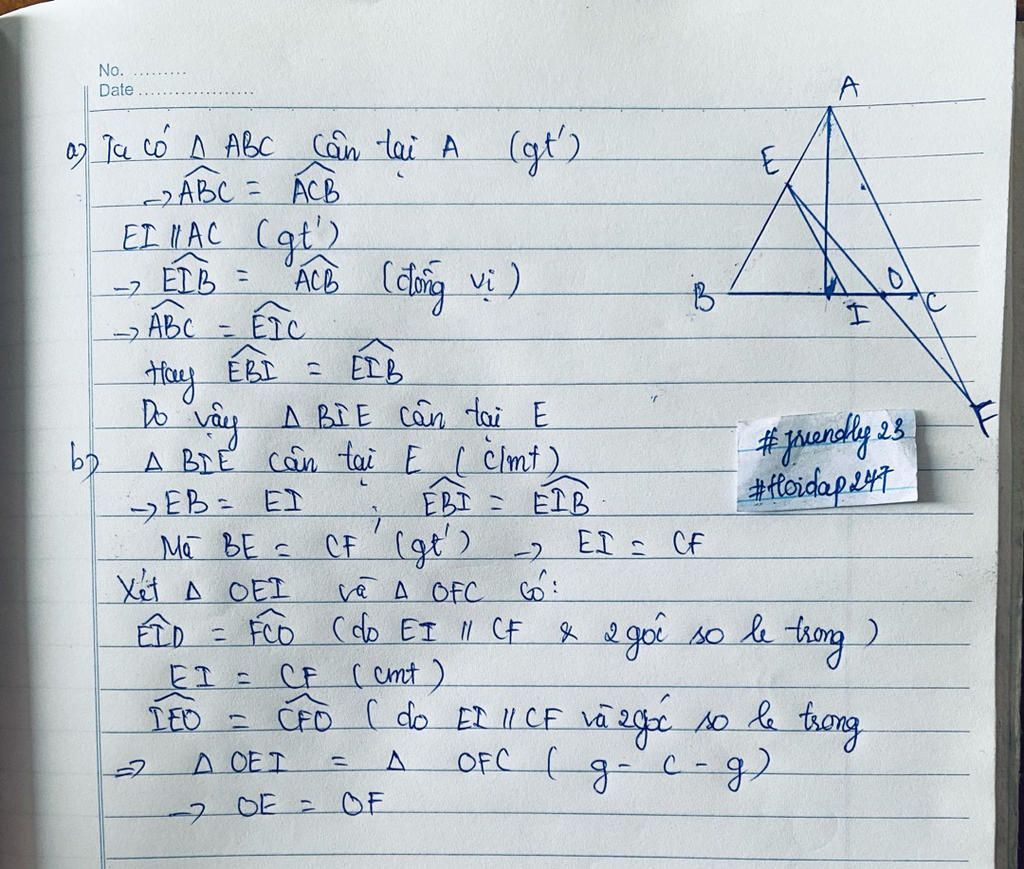 No. .........
Date ...................
a) Ta có Δ ABC cân tại A (gt)
→ ABC = ACB
EI // AC (gt)
→ EIB = ACB (đồng vị)
→ ABC = EIC
Hay EBI = EIB
Do vậy Δ BIE cân tại E
b) Δ BIE cân tại E (c/mt)
→ EB = EI ; EBI = EIB
Mà BE = CF (gt) → EI = CF
Xét Δ OEI và Δ OFC có:
EIO = FCO (do EI // CF & 2 góc so le trong)
EI = CF (cmt)
IEO = CFO (do EI // CF và 2 góc so le trong
⇒ Δ OEI = Δ OFC (g - c - g)
→ OE = OF
A
E
B
I
O
C
F
#friendly23
#Hoidap247